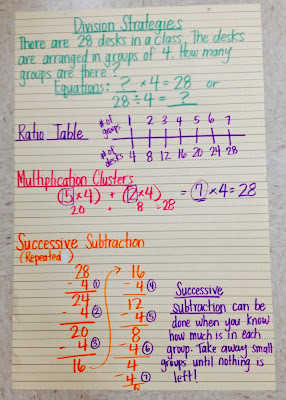 Division Strategies
There are 28 desks in a class. The desks
are arranged in groups of 4. How many
groups are there?
Equations: ? × 4 = 28 or
28 ÷ 4 = ?
Ratio Table
# of groups 1 2 3 4 5 6 7
# of desks 4 8 12 16 20 24 28
Multiplication Clusters
(5×4) + (2×4) = 7×4=28
20 + 8 =28
Successive Subtraction
(Repeated)
28
- 4 ①
24
- 4 ②
20
- 4 ③
16
16
- 4 ④
12
- 4 ⑤
8
- 4 ⑥
4
- 4 ⑦
0
Successive
subtraction can be
done when you know
how much is in each
group. Take away small
groups until nothing is
left!